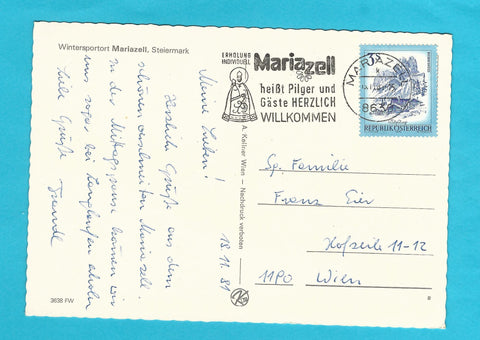 Wintersportort Mariazell, Steiermark
Meine Lieben!
Herzliche Grüße aus dem
schönen verschneiten Mariazell.
In der Mittagspause können wir
uns sogar bei Langlaufen erholen
Liebe Grüße
18.11.81
3638 FW
A. Kellner Wien - Nachdruck verboten
ERHOLUNG
INDIVIDUELL
Mariazell
heißt Pilger und
Gäste HERZLICH
WILLKOMMEN
MARIAZELL
8630
REPUBLIK ÖSTERREICH
Sp. Familie
Franz Eier
Hofzeile 11-12
1190 Wien